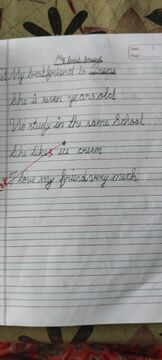 My best friend
Date :
Page :
My bestfriend is
She is seven years old
We study in the same School
She likes ice cream
I love my friend very much